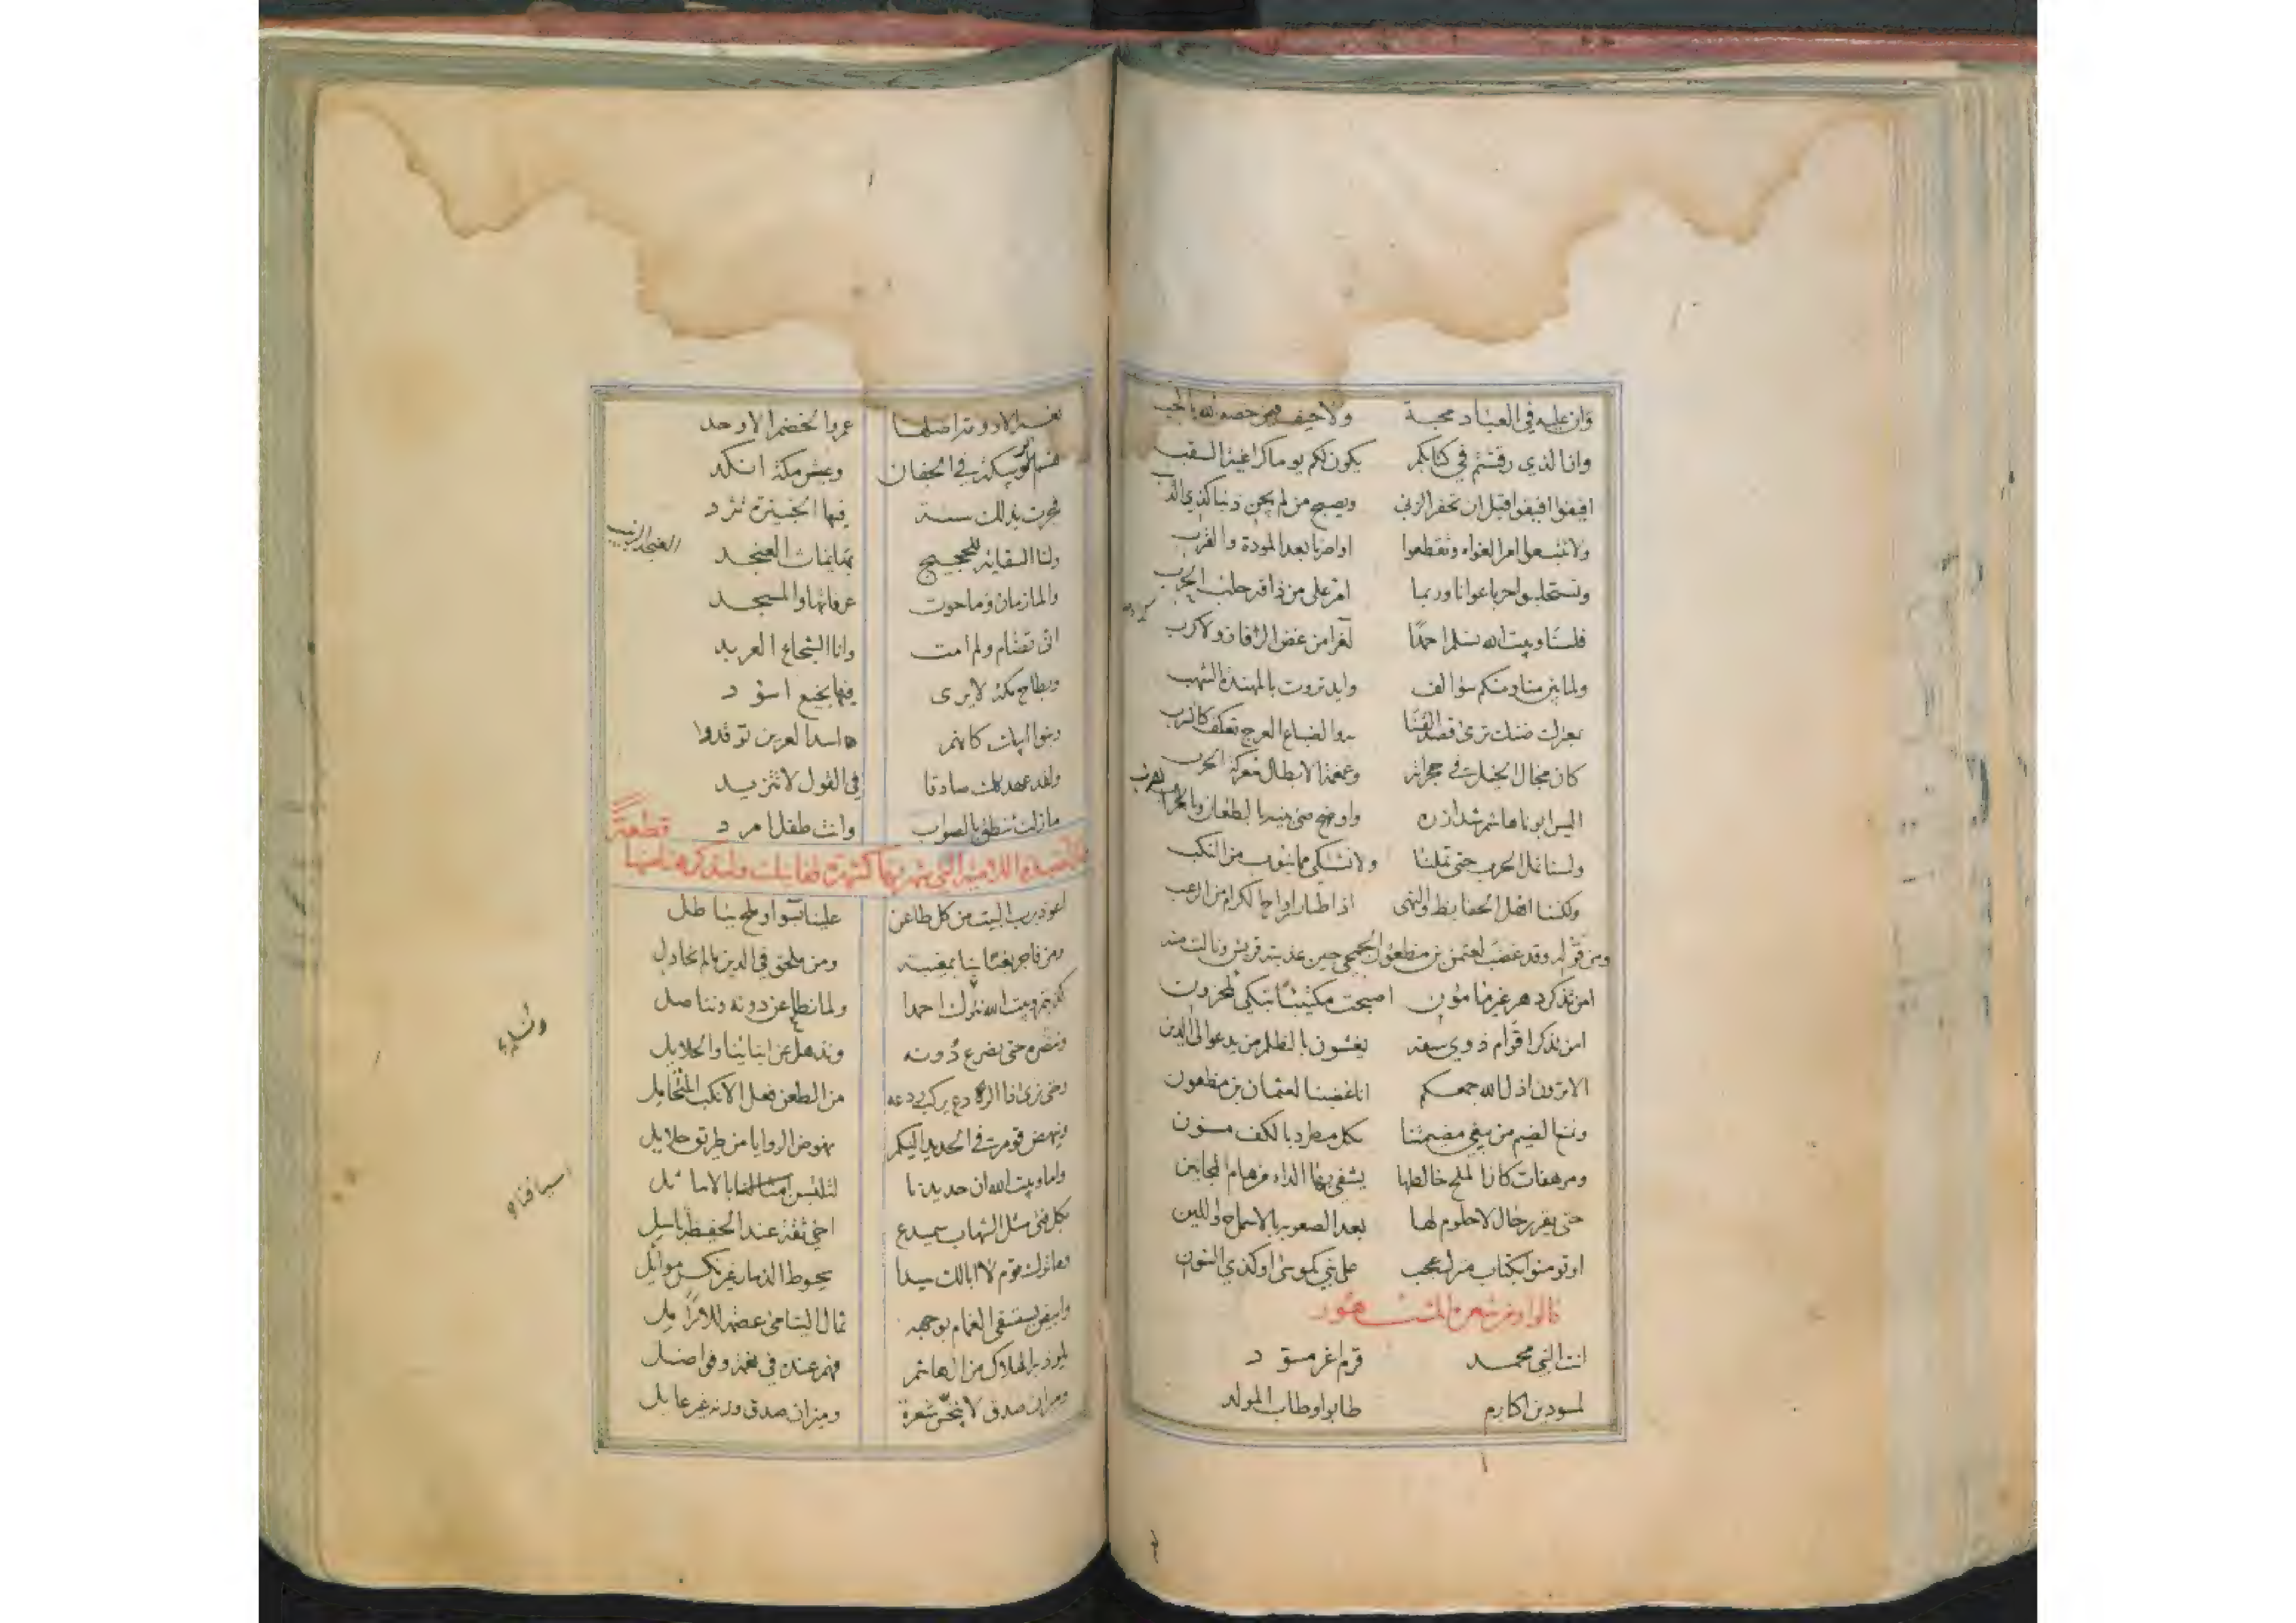 وان عليه في العباد محبة ولا حيف فيمن خصه الله بالحب
وان الذي رقشتم في كتابكم يكون لكم يوما كراغية السقب
افيقوا افيقوا قبل ان تحفر الزبى ويصبح من لم يجن ذنبا كذي الذنب
ولا تتبعوا امر الغواه وتقطعوا اواصرنا بعد المودة والقرب
وتستحلبوا حربا عوانا وربما امر على من ذاقه حلب الحرب
فلسنا وبيت الله نسلم احمدا لعزا من عض الزمان ولا كرب
ولما تبن منا ومنكم سوالف وايد تروت بالمهندة الشهب
بمعترك ضنك ترى قصد القنا به والضباع العرج تعكف كالشرب
كان مجال الخيل في حجراته وغمغمة الابطال معركة الحرب
اليس ابونا هاشم شد ازره واوصى بنيه بالطعان وبالضرب
ولسنا نمل الحرب حتى تملنا ولا نشتكي مما ينوب من النكب
ولكننا اهل الحفايظ والنهى اذا طار ارواح الكرام من الرعب
ومن قوله وقد غضب لعثمن بن مظعون الجمحي حين عذبته قريش ونالت منه
امن تذكر دهر غير مامون اصبحت مكتئبا تبكي كمحزون
امن تذكر اقوام ذوي سفه يغشون بالظلم من يدعو الى الدين
الا ترون اذل الله جمعكم انا غضبنا لعثمان بن مظعون
ونمنع الضيم من يبغي مضيمتنا بكل مطرد بالكف مسنون
ومرهفات كان الملح خالطها يشفى بها الداء من هام المجانين
حتى يقر رجال لا حلوم لها بعد الصعوبة بالاسماح واللين
او تومنوا بكتاب منزل عجب على نبي كموسى او كذي النون
قالوا ومن شعره المشهور
انت النبي محمد قرم اغر مسود
لمسودين اكارم طابوا وطاب المولد
عمرو الخضم الاوحد
وعيش مكة انكد
فجرت بذلك سنة فيها الخبيزة تثرد
ولنا السقاية للحجيج بها يماث العنجد
العنجد الزبيب
والمازمان وما حوت عرفاتها والمسجد
انى تضام ولم امت وانا الشجاع العربد
وبطاح مكة لا يرى فيها نجيع اسود
وبنو ابيك كانهم اسد العرين توقدوا
ولقد عهدتك صادقا في القول لا تتزيد
ما زلت تنطق بالصواب وانت طفل امرد
قطعة
اعوذ برب البيت من كل طاعن علينا بسوء او ملح بباطل
ومن فاجر يغتابنا بمغيبة ومن ملحق في الدين ما لم نحاول
كذبتم وبيت الله نترك احمدا ولما نطاعن دونه ونناضل
وننصره حتى نصرع دونه ونذهل عن ابنائنا والحلايل
وحتى نرى ذا الردع يركب ردعه من الطعن فعل الانكب المتحامل
وينهض قوم في الحديد اليكم نهوض الروايا من طريق حلايل
وانا وبيت الله ان جد جدنا لتلتبسن بالاماثل
بكل فتى مثل الشهاب سميدع اخي ثقة عند الحفيظة باسل
وما ترك قوم لا ابالك سيدا يحوط الذمار غير نكس موائل
وابيض يستسقى الغمام بوجهه ثمال اليتامى عصمة للارامل
يلوذ به الهلاك من ال هاشم فهم عنده في نعمة وفواضل
وميزان صدق لا يخس شعيرة وميزان صدق وزنه غير عايل
اسيافنا